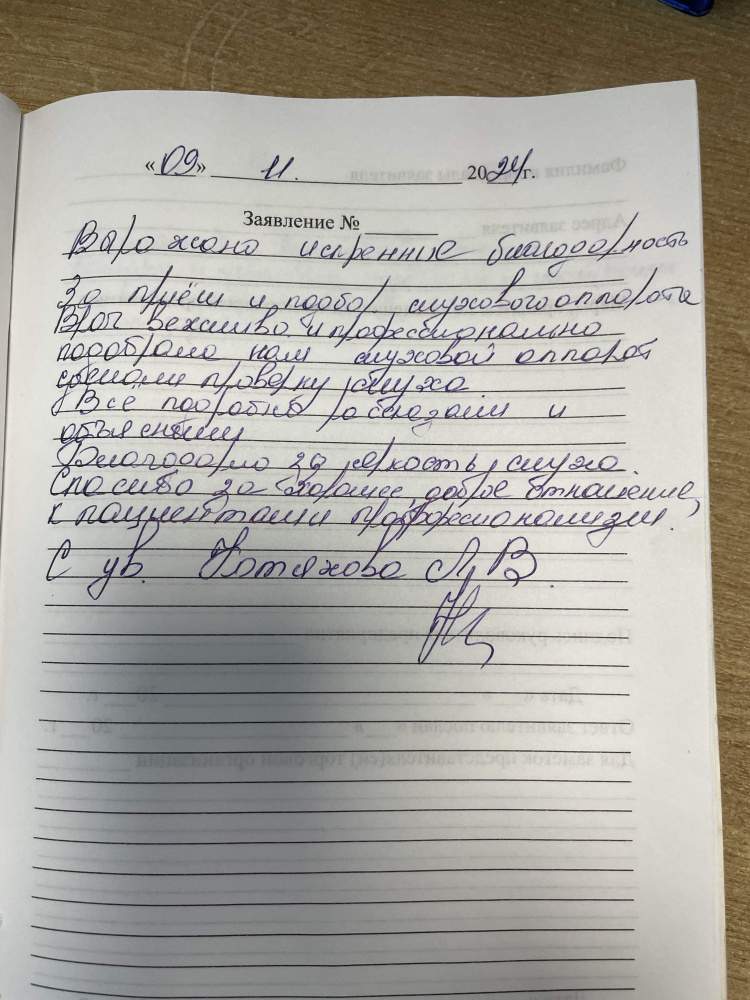 «09» 11. 2024г.
Заявление №
Выражаю искренние благодарность
За приём и подбор слухового аппарата
Врач вежливо и профессионально
подобрала нам слуховой аппарат
сделали проверку слуха
Всё подробно рассказали и
объяснили
Благодарю за чуткость, слуха.
Спасибо за хорошее, доброе отношение,
к пациентам и профессионализм.
С ув. Л, В.